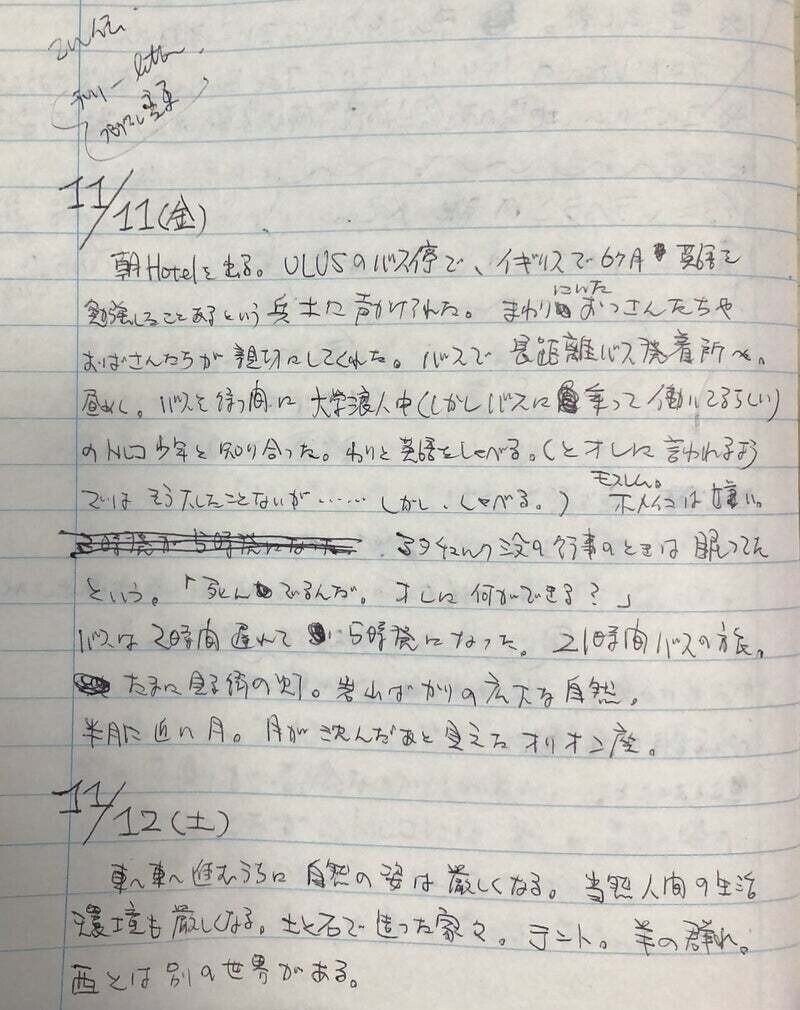 11/11(金)
朝Hotelを出る。ULUSのバス停で、イギリスで6ヶ月英語を
勉強したことあるという兵士に声かけられた。まわりにいたおっさんたちや
おばさんたちが親切にしてくれた。バスで長距離バス発着所へ。
昼めし。バスを待つ間に大学浪人中(しかしバスに乗って働いてるらしい)
のトルコ少年と知り合った。わりと英語をしゃべる。(とオレに言われるよう
ではそう大したことないが……しかし、しゃべる。)モスレム。ホメイニは嫌い。
3時発が5時発になった
アタチュルク没の行事のときは眠ってた
という。「死んでるんだ。オレに何ができる?」
バスは2時間遅れて5時発になった。21時間バスの旅。
たまに見る街の灯。岩山ばかりの広大な自然。
半月に近い月。月が沈んだあと見えたオリオン座。
11/12(土)
東へ東へ進むうちに自然の姿は厳しくなる。当然人間の生活
環境も厳しくなる。土と石で造った家々。テント。羊の群れ。
西とは別の世界がある。